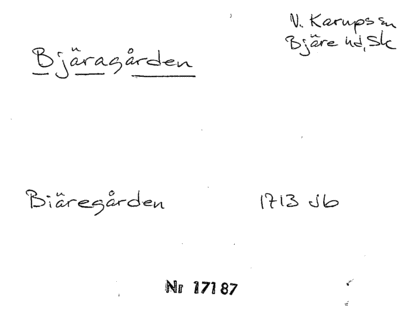 V. Karups sn
Bjäre hd, Sk
Bjäragården
Biäregården 1713 Jb
Nr 17187